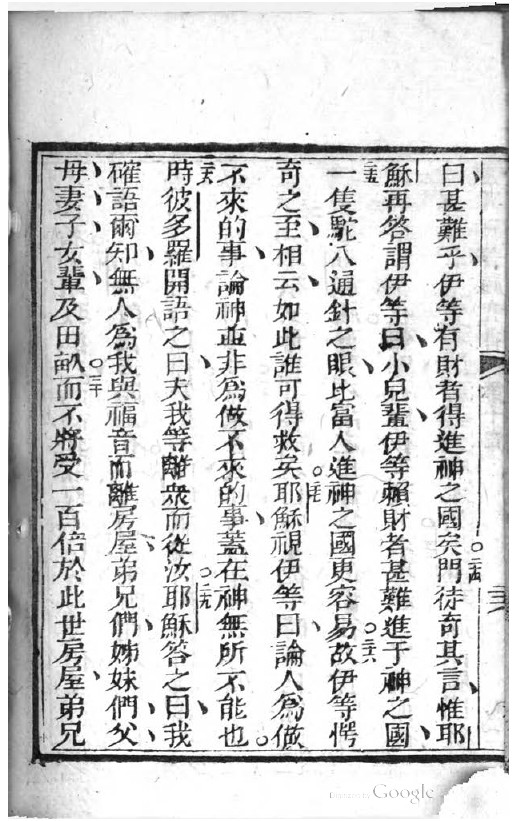 曰甚難乎伊等有財者得進神之國矣○二十四門徒奇其言惟耶
穌再答謂伊等曰小兒輩伊等賴財者甚難進于神之國
二十五一隻駝入通針之眼比富人進神之國更容易○二十六故伊等愕
奇之至相云如此誰可得救矣○二十七耶穌視伊等曰論人為做
不來的事論神並非為做不來的事蓋在神無所不能也○
二十八時彼多羅開語之曰夫我等離衆而從汝○二十九耶穌答之曰我
確語爾知無人為我與福音而離房屋弟兄們姊妹們父
母妻子女輩及田畝○三十而不將受一百倍於此世房屋弟兄
Google